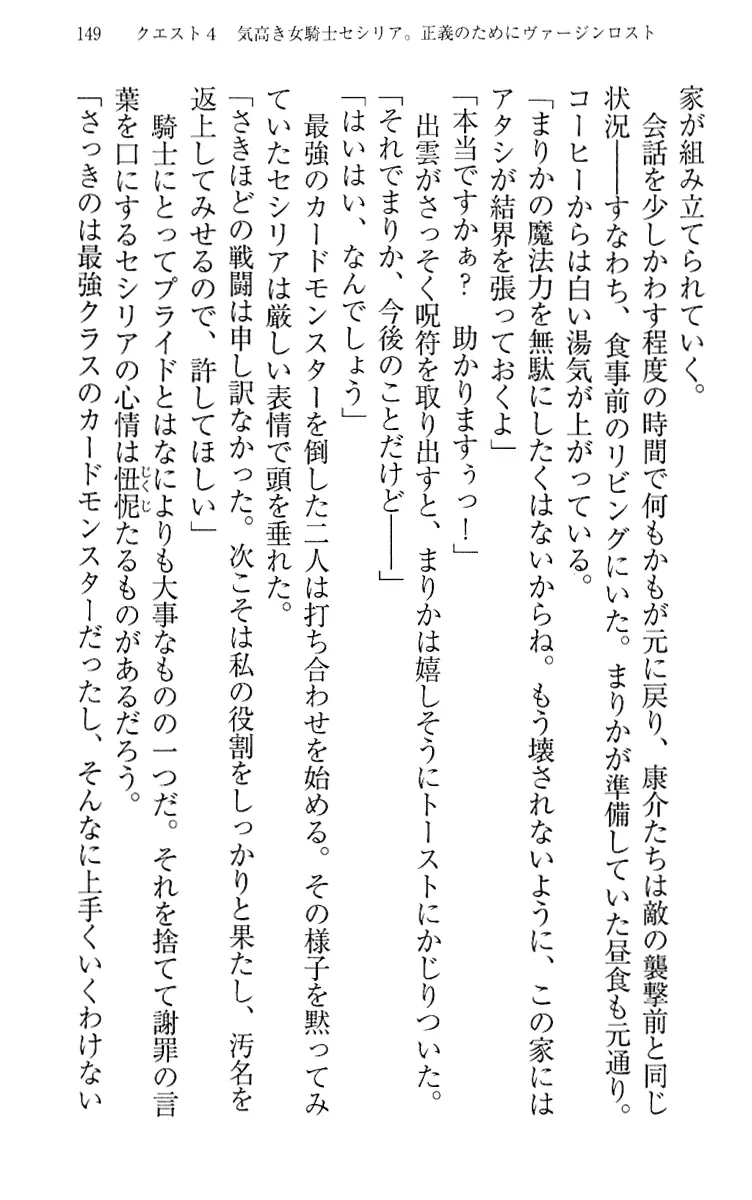 149　クエスト4　気高き女騎士セシリア。正義のためにヴァージンロスト
家が組み立てられていく。
　会話を少しかわす程度の時間で何もかもが元に戻り、康介たちは敵の襲撃前と同じ
状況――すなわち、食事前のリビングにいた。まりかが準備していた昼食も元通り。
コーヒーからは白い湯気が上がっている。
「まりかの魔法力を無駄にしたくはないからね。もう壊されないように、この家には
アタシが結界を張っておくよ」
「本当ですかぁ？　助かりますぅっ！」
　出雲がさっそく呪符を取り出すと、まりかは嬉しそうにトーストにかじりついた。
「それでまりか、今後のことだけど――」
「はいはい、なんでしょう」
　最強のカードモンスターを倒した二人は打ち合わせを始める。その様子を黙ってみ
ていたセシリアは厳しい表情で頭を垂れた。
「さきほどの戦闘は申し訳なかった。次こそは私の役割をしっかりと果たし、汚名を
返上してみせるので、許してほしい」
　騎士にとってプライドとはなによりも大事なものの一つだ。それを捨てて謝罪の言
葉を口にするセシリアの心情は忸怩じくじたるものがあるだろう。
「さっきのは最強クラスのカードモンスターだったし、そんなに上手くいくわけない